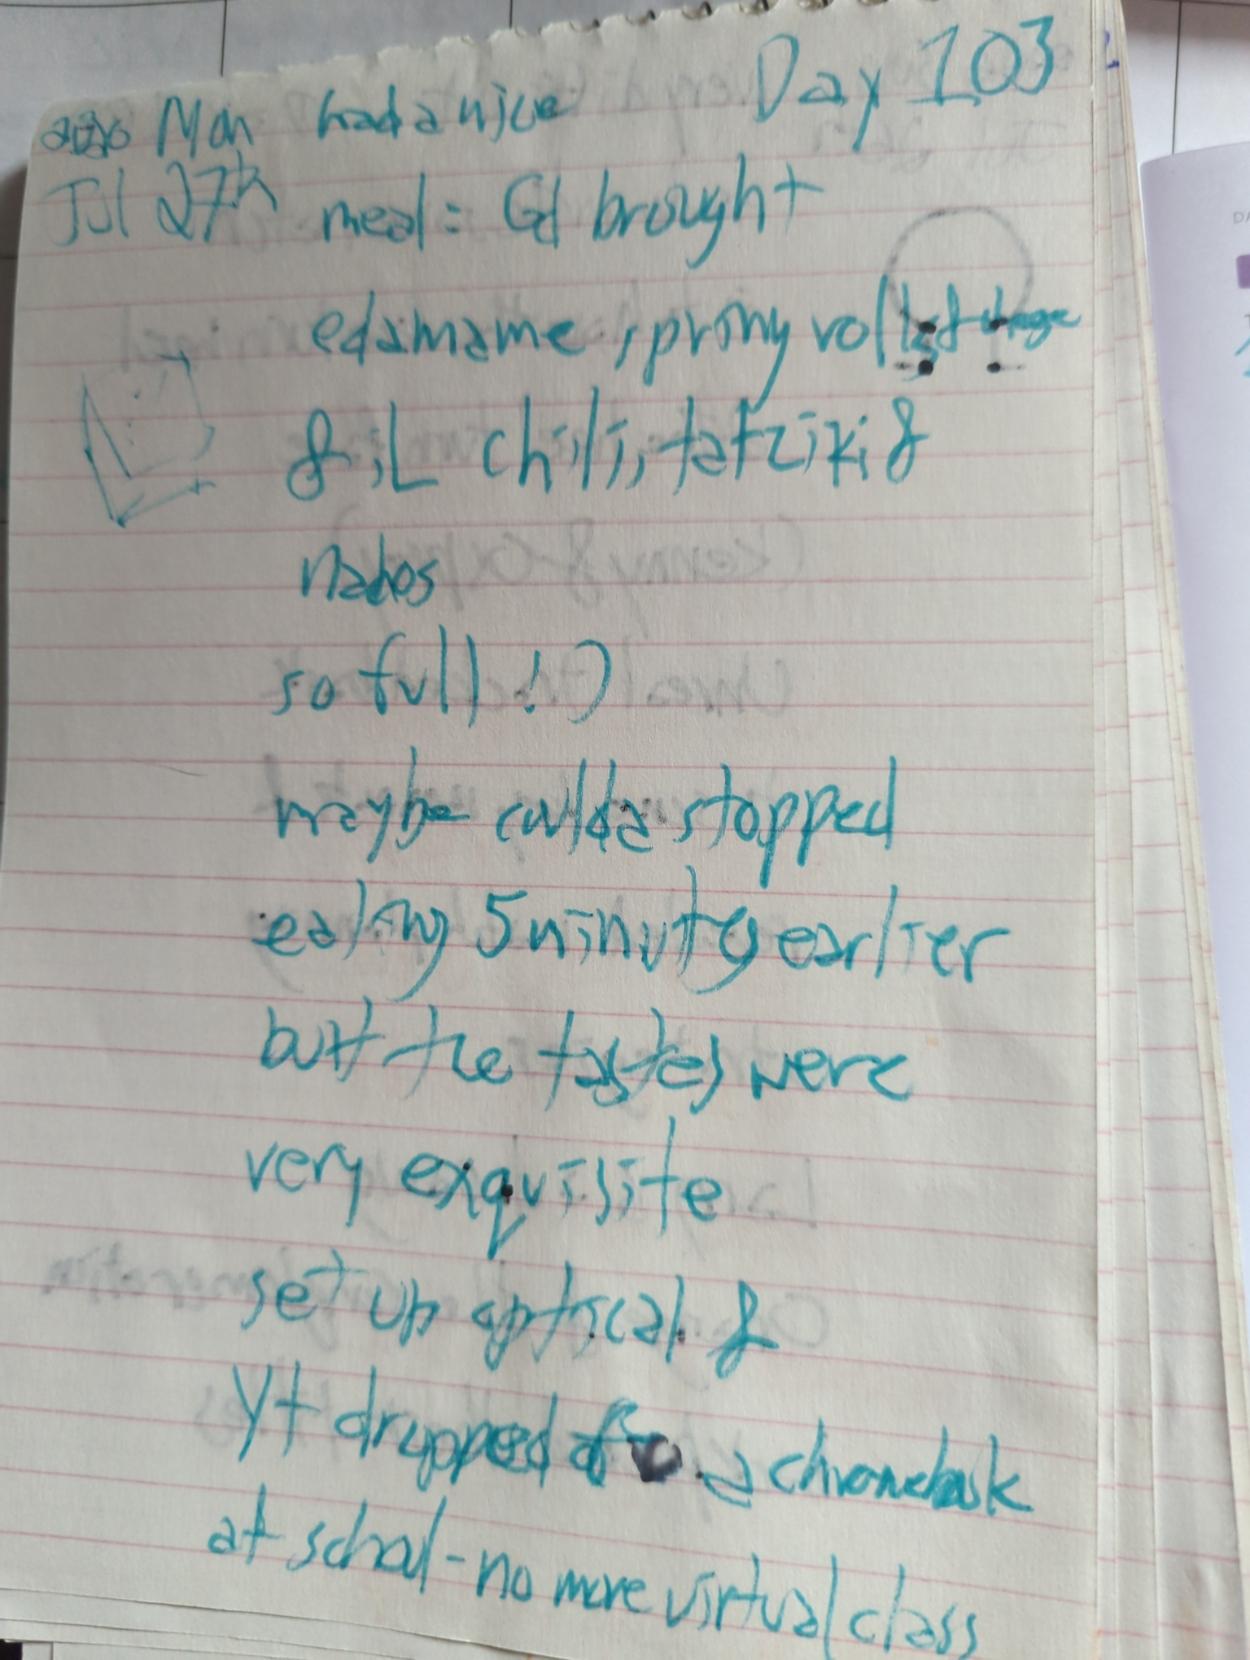 Day 103
2020 Mon had a nice
Jul 27th meal = Gd brought
edamame, spring roll
& iL chili, tatziki &
nachos
so full !)
maybe coulda stopped
eating 5 minutes earlier
but the tastes were
very exquisite
set up optical &
Yt dropped off a chromebook
at school - no more virtual class